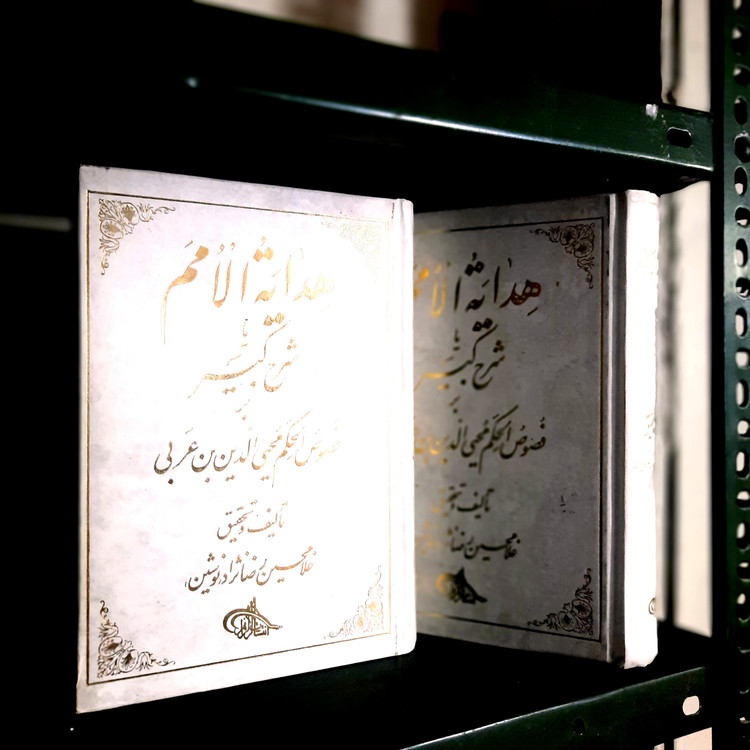 هِدایَةُ الْاُمَم
یا
شرح کبیر
بر
فُصُوصُ الْحِکَم مُحْیی الدّین بن عَرَبی
تألیف و تحقیق
غلامحسین رضانژاد «نوشین»
هِدایَةُ الْا
یا
شرح کبیر
بر
فُصُوصُ الْحِکَم مُحْیی الدّین بن
تألیف و تحقیق
غلامحسین رضانژاد